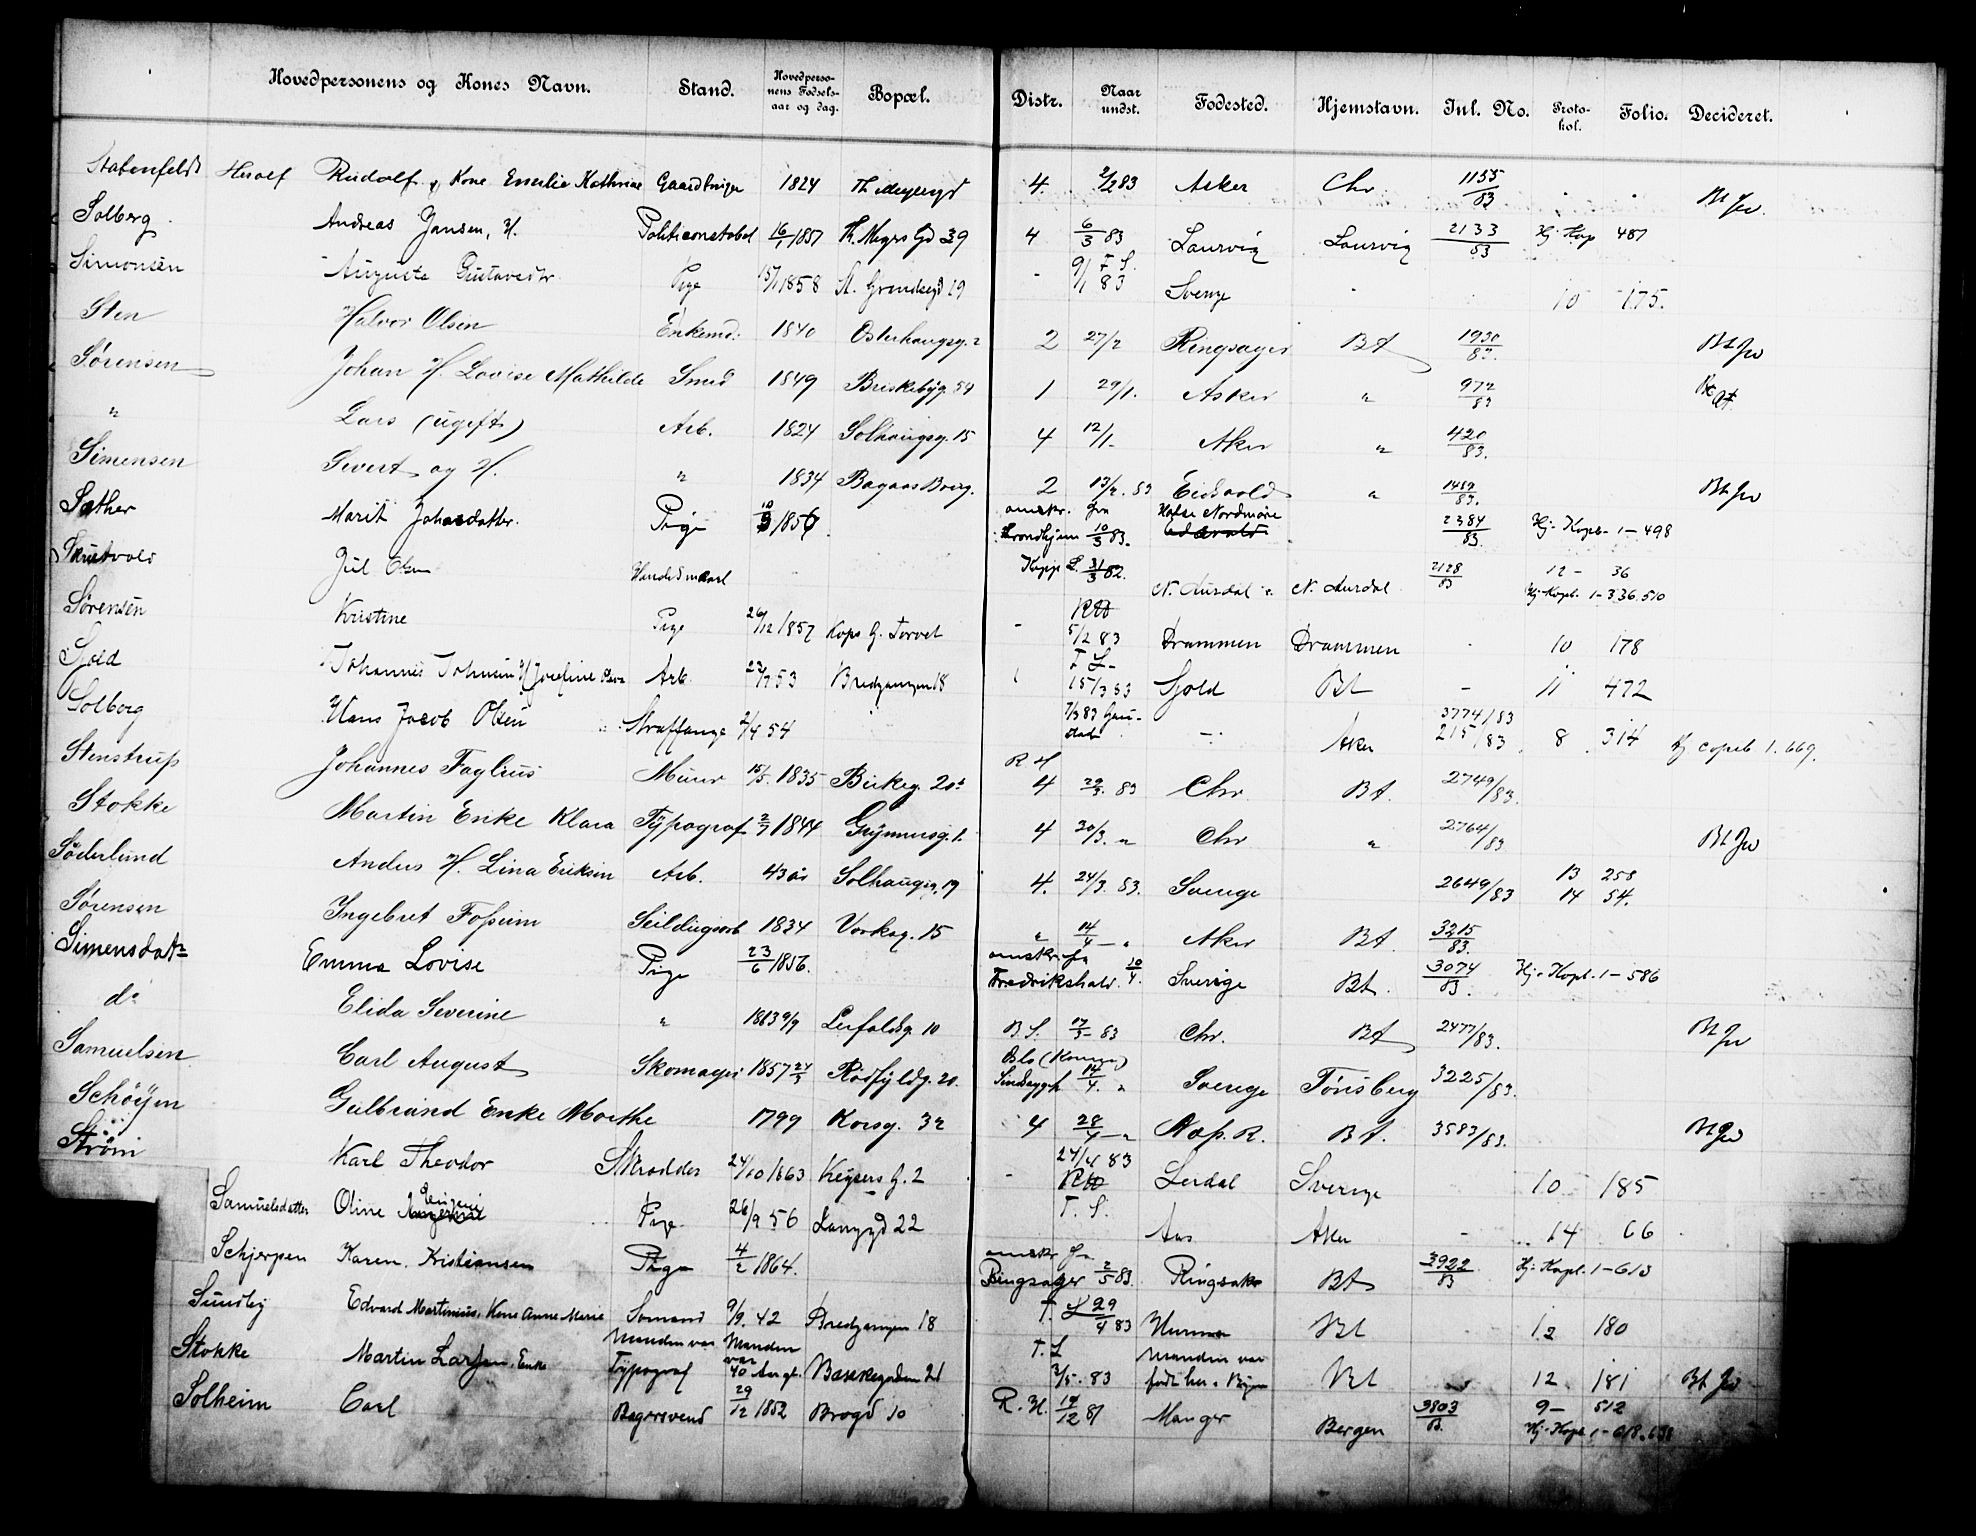 Hovedpersonens og Kones Navn. Stand. Hovedpersonens Fødselsaar og dag. Bopæl. Distr. Naar undst. Fødested. Hjemstavn. Inl. No. Protokol. Folio. Decideret.
Rudolf og Kone Emilie Kathrine 1824 4 2/2 83 Aker Chr. 1155/83 Bt Jw.
Solberg Andreas Jansen, H. Politiconstabel 16/1 1857 Th. Meyers Gd 39 4 6/3 83 Laurvig Laurvig 2133/83 Hj. Kop 487
Simonsen Augusta Gustavsdtr. Pige 15/1 1858 St. Grendsegd 29 - 9/1 83 T. S. Sverige 10 175.
Sten Halvor Olsen Enkemd. 1840 Osterhaugsg. 2 2 27/2 Ringsager Bt 1930/83. Bt Jw
Sørensen Johan H. Lovise Mathilde Smed 1849 Briskebyg. 54 1 29/1. Asker " 972/83
" Lars (ugift) Arb. 1824 Solhaugsg. 15 4 12/1- Aker " 420/83.
Simensen Sivert og H. " 1834 2 13/2. 83 Eidsvold " 1489/83. Bt Jw
Sæther Marit Johnsdatter. Pige omskr. fra Trondhjem 10/3 83. Halse Nordmøre 2384/83. Hj. Kopb. 1-498
Jul Olsen Handelsmand 31/3 82. N. Aurdal N. Aurdal 2128/83 12 - 36
Hj. Kopb. 1-336.510
Sørensen Kristine Pige 26/12 1857 Kops G. Torvet - 5/2 83 Drammen Drammen 10 178
Johannes Arb. 53 Bredgangen 18 1 T. S. 15/3 83 Bt - 11 472
Solberg Hans Jacob Olsen Straffange 2/4 54 7/3 83 Gaustad -"- Aker 3774/83 215/83. 8 314 Hj copib 1. 669.
Stenstrup Johannes Muur 15/5. 1835 Birkeg. 20 R H 4 29/3. 83 Chr Bt. 2749/83.
Stokke Martin Enke Klara Typograf 2/7 1844 4 30/3. " Chr " 2764/83 Bt Jw
Søderlund Anders H. Lina Eriksen Arb. 43 år Solhaugsg. 19 4. 24/3. 83. Sverige 2649/83 13 258
14 54.
Sørensen Ingebret Fossum 1834 15 " 14/4 - " Aker Bt. 3215/83.
Simensdatr Emma Lovise Pige 23/6 1856. omskr. fra Fredrikshald. 10/4. Sverige Bt. 3074/83. Hj. Kopb. 1-586
do Elida Severine " 1863 9/9 10 B S. 17/3- 83 Chr. Bt 2477/83. Bt Jw
Samuelsen Carl August Skomager 1857 24/3 Rødfyldg. 20. 14/4. " Sverige Tönsberg 3225/83.
Schøyen Gulbrand Enke Marthe 1799 Korsg. 32 4 28/4- " Næs. R. Bt. 3583/83. Bt Jw
Strøm Karl Theodor Skrædder 24/10 1863 Keysers G. 2 - 24/4 83 Lerdal Sverige 10 185
Samuelsdatter Oline Pige 26/9 56 Langgd 22 T. S. Aas Aker - 14 66
Schjerpen Karen Kristiansen Pige 4/2 1864. omskr fra Ringsager 2/5 83. Ringsaker Bt 3922/83 Hj. Kopb. 1-613
Sundby Edvard Martinius, Kone Anne Marie Sømand 9/9. 42 Bredgangen 18 T. S. 29/4 83 Hurum Bt 12 180
Stokke Martin Larsen, Enke Manden var Typograf Manden var 40 Aar gl. Bakkegaden 21 T. S 3/5. 83 Manden var født her i Byen Bt 12 181 Bt Jw
Solheim Carl Bagersvend 29/12 1852 Brogd 10 R. H. 19/12 81 Manger Bergen 3803/83. 9- 512
Hj. Kopb 1-618.638